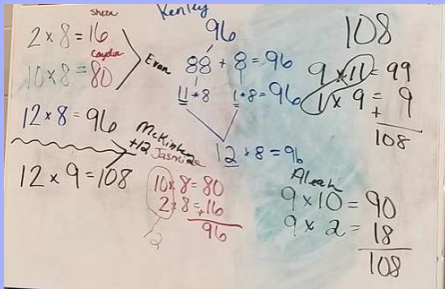 Shiza
2 x 8 = 16
Caydin
10 x 8 = 80
Evan
12 x 8 = 96
+12
12 x 9 = 108
Kenley
96
88 + 8 = 96
11 * 8 1 * 8 = 96
12 * 8 = 96
McKinley
Jasmine
10 x 8 = 80
2 x 8 = +16
96
12
108
9 x 11 = 99
1 x 9 = + 9
108
Aleah
9 x 10 = 90
9 x 2 = 18
108